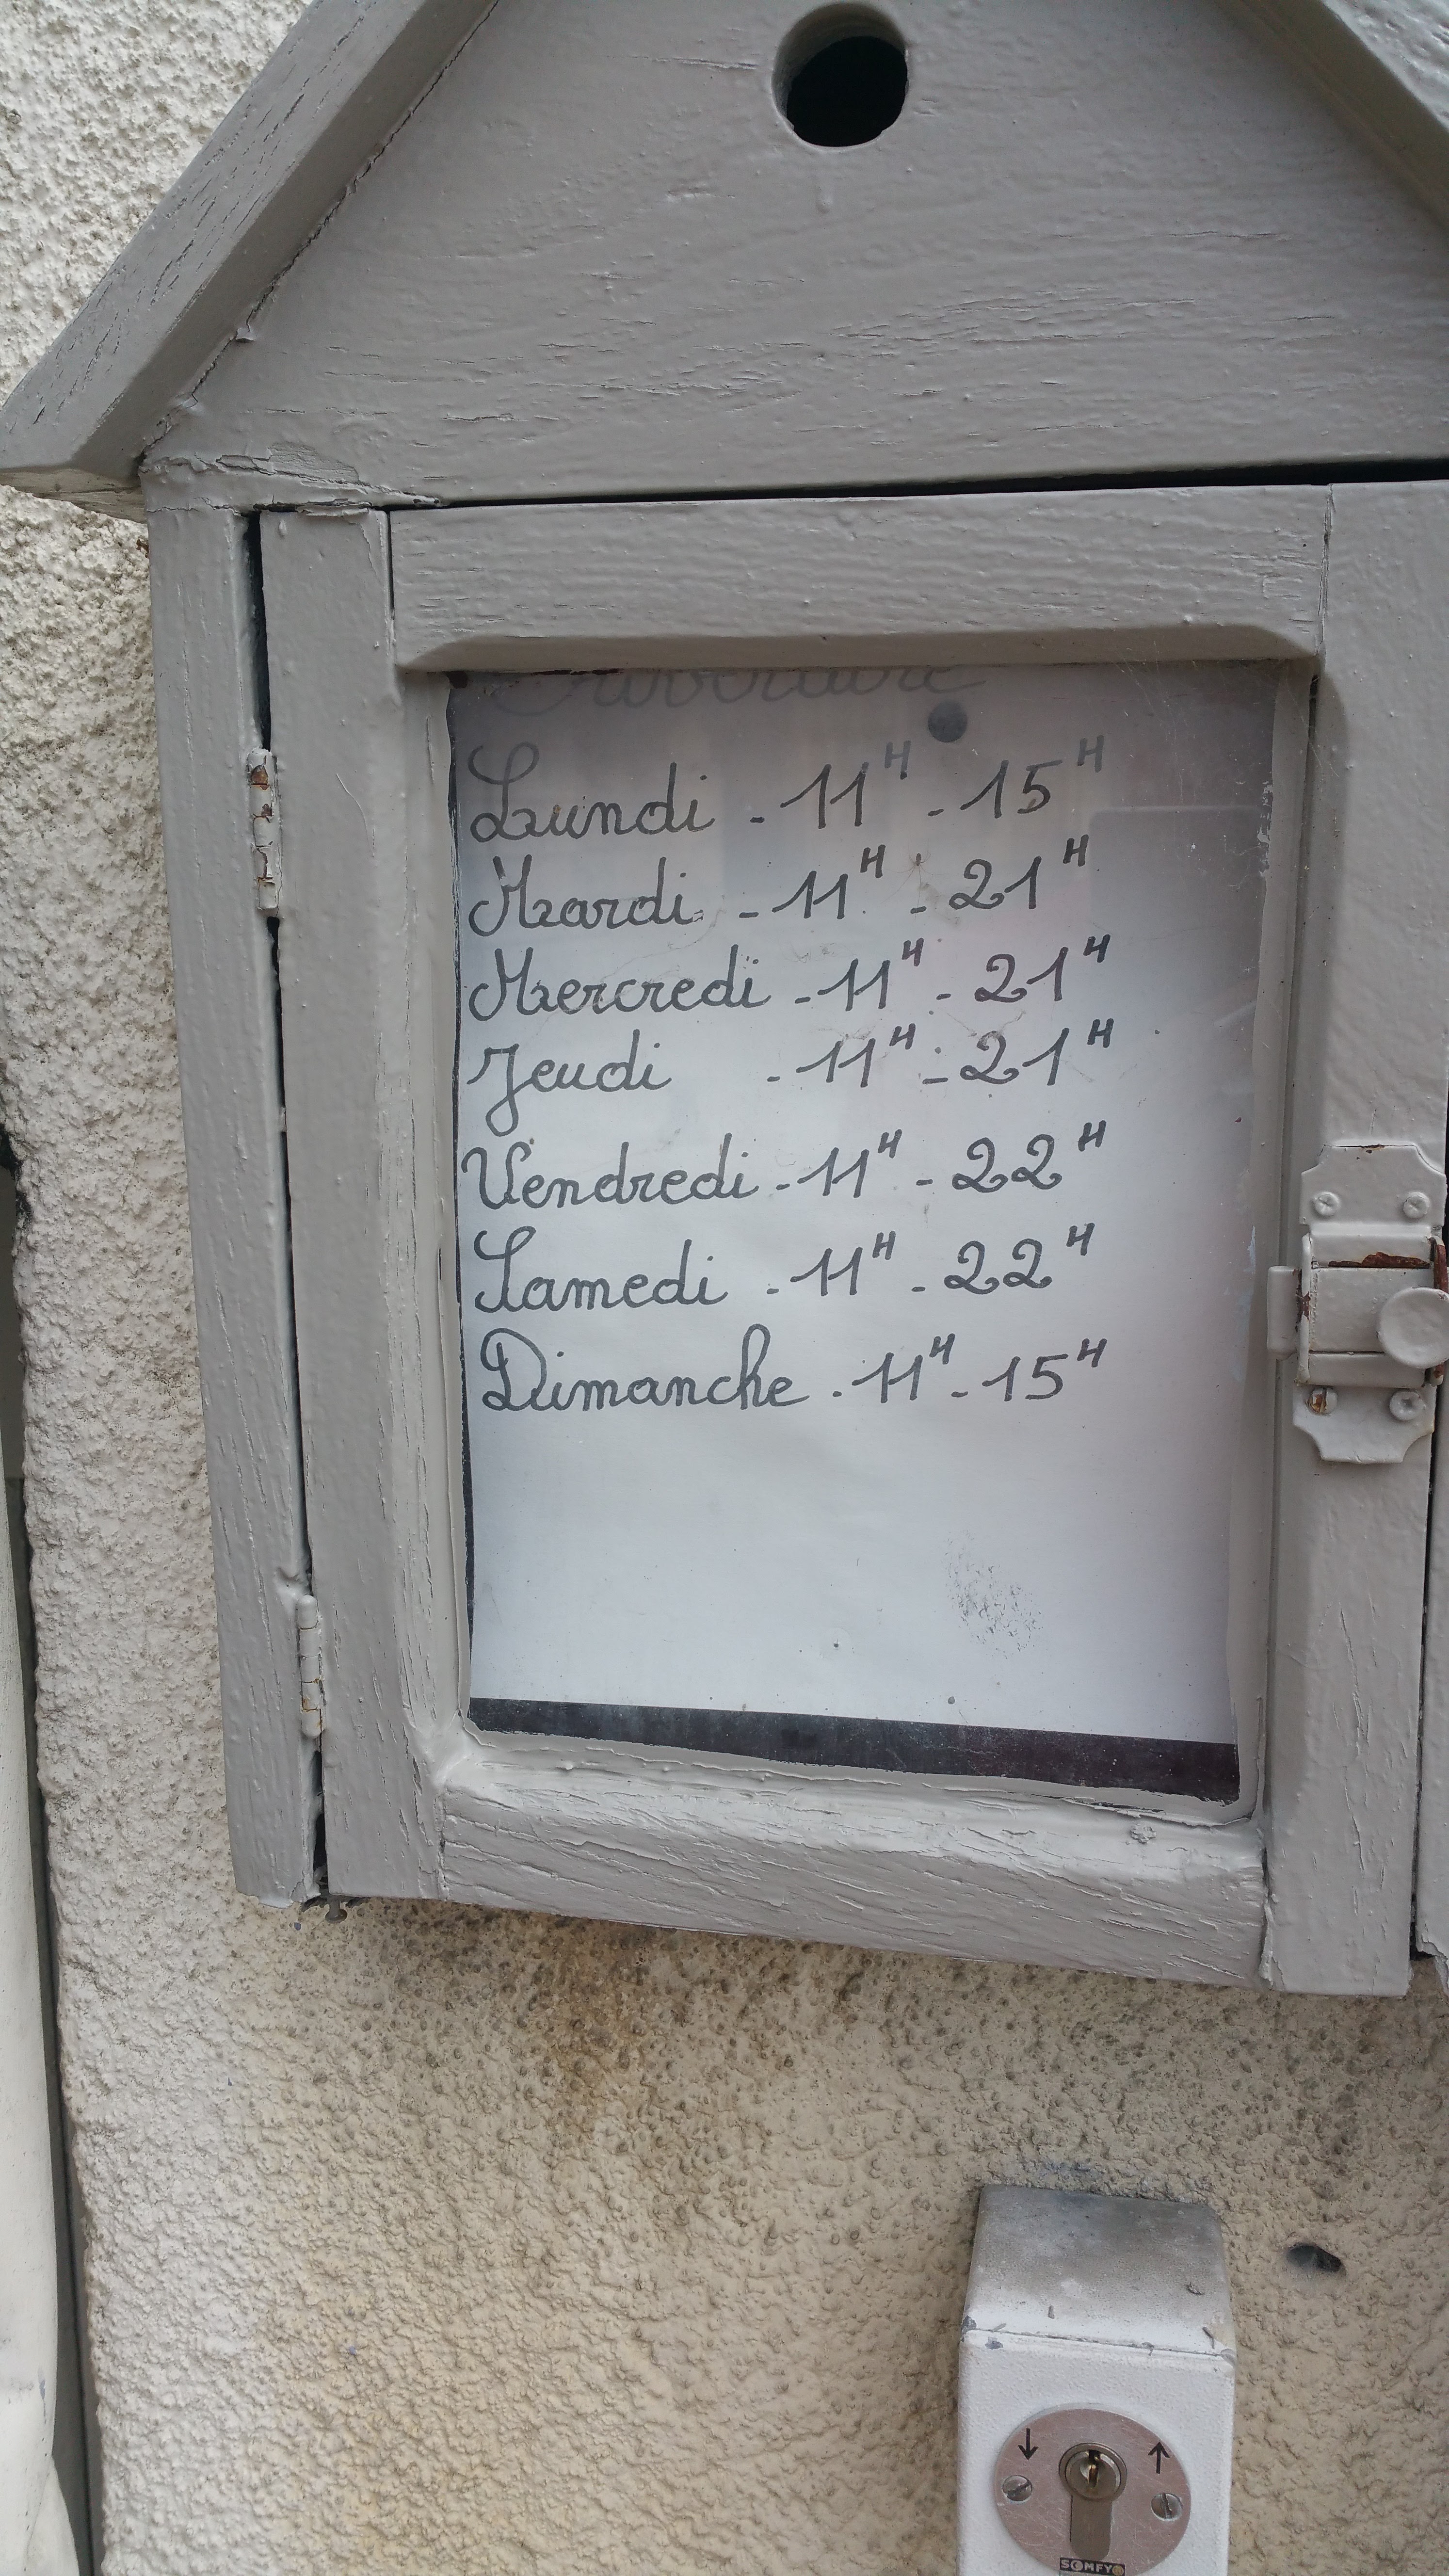 Ouverture
Lundi - 11H - 15H
Mardi - 11H - 21H
Mercredi - 11H - 21H
Jeudi - 11H - 21H
Vendredi - 11H - 22H
Samedi - 11H - 22H
Dimanche - 11H - 15H
SOMFY